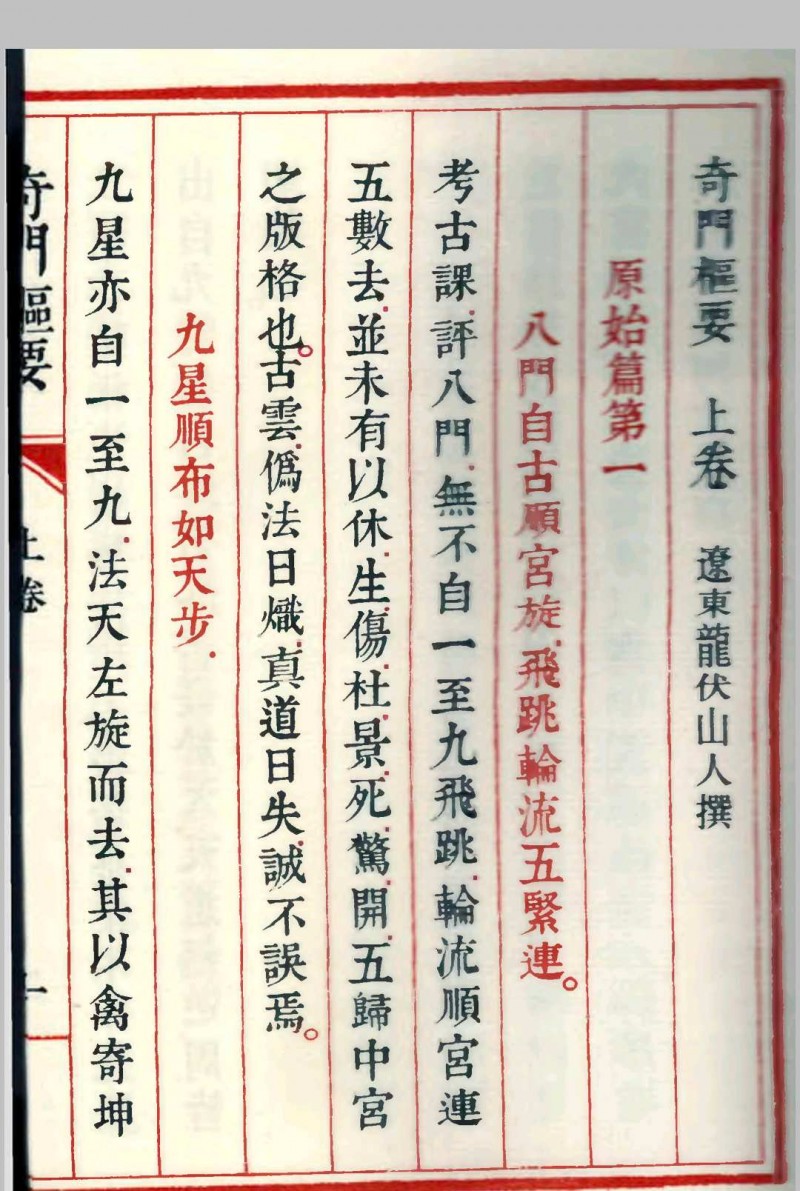 奇門樞要　上卷　遼東龍伏山人撰
原始篇第一
八門自古順宮旋.飛跳輪流五緊連。
考古課.評八門.無不自一至九飛跳.輪流順宮連
五數去.並未有以休.生.傷.杜.景.死.驚.開.五歸中宮
之版格也。古雲.偽法日熾.真道日失.誠不誤焉。
九星順布如天步.
九星亦自一至九.法天左旋而去.其以禽寄坤
奇門樞要　上卷　一